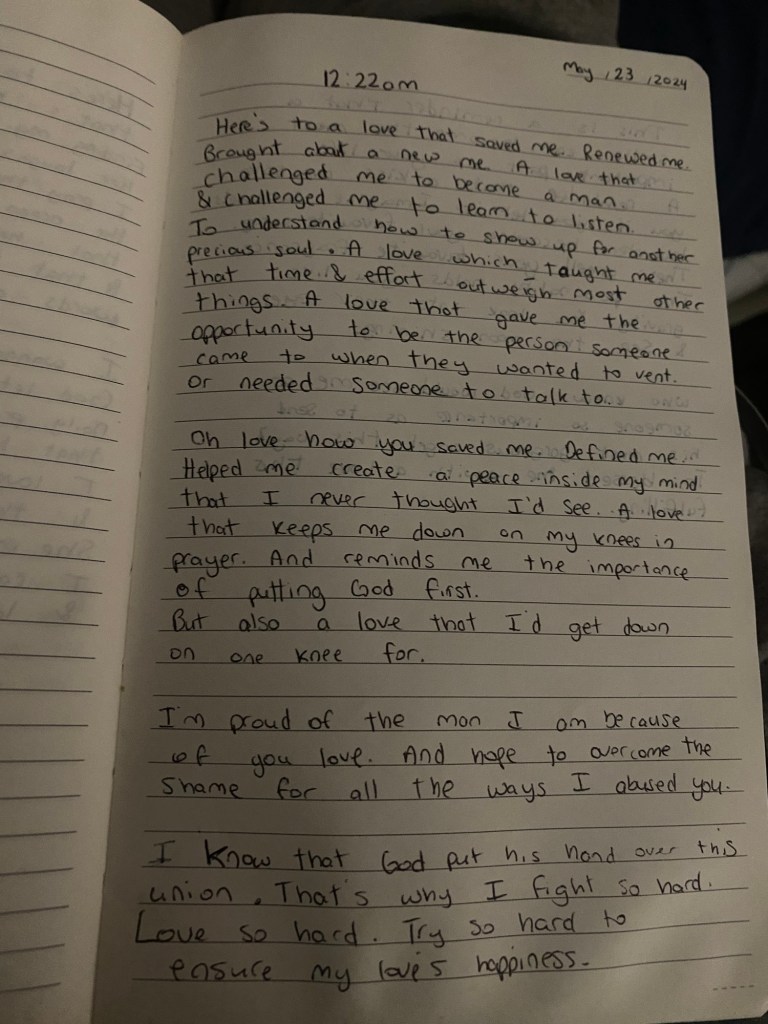 12:22am
May, 23, 2024
Here's to a love that saved me. Renewed me.
Brought about a new me A love that
challenged me to become a man.
& challenged me to learn to listen.
To understand how to show up for another
precious soul. A love which taught me
that time & effort outweigh most other
things. A love that gave me the
opportunity to be the person someone
came to when they wanted to vent.
or needed someone to talk to.
Oh love how you saved me. Defined me.
Helped me create a peace inside my mind
that I never thought I'd see. A love
that keeps me down on my knees in
prayer. And reminds me the importance
of putting God first.
But also a love that I'd get down
on one knee for.
I'm proud of the man I am because
of you love. And hope to overcome the
shame for all the ways I abused you.
I know that God put his hand over this
union. That's why I fight so hard.
Love so hard. Try so hard to
ensure my love's happiness.